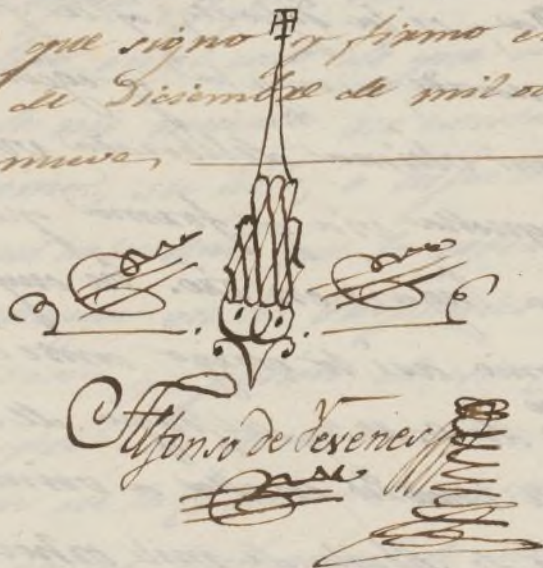 que signo y firmo en
de Diciembre de mil oc
nueve,
Alfonso de Yevenes